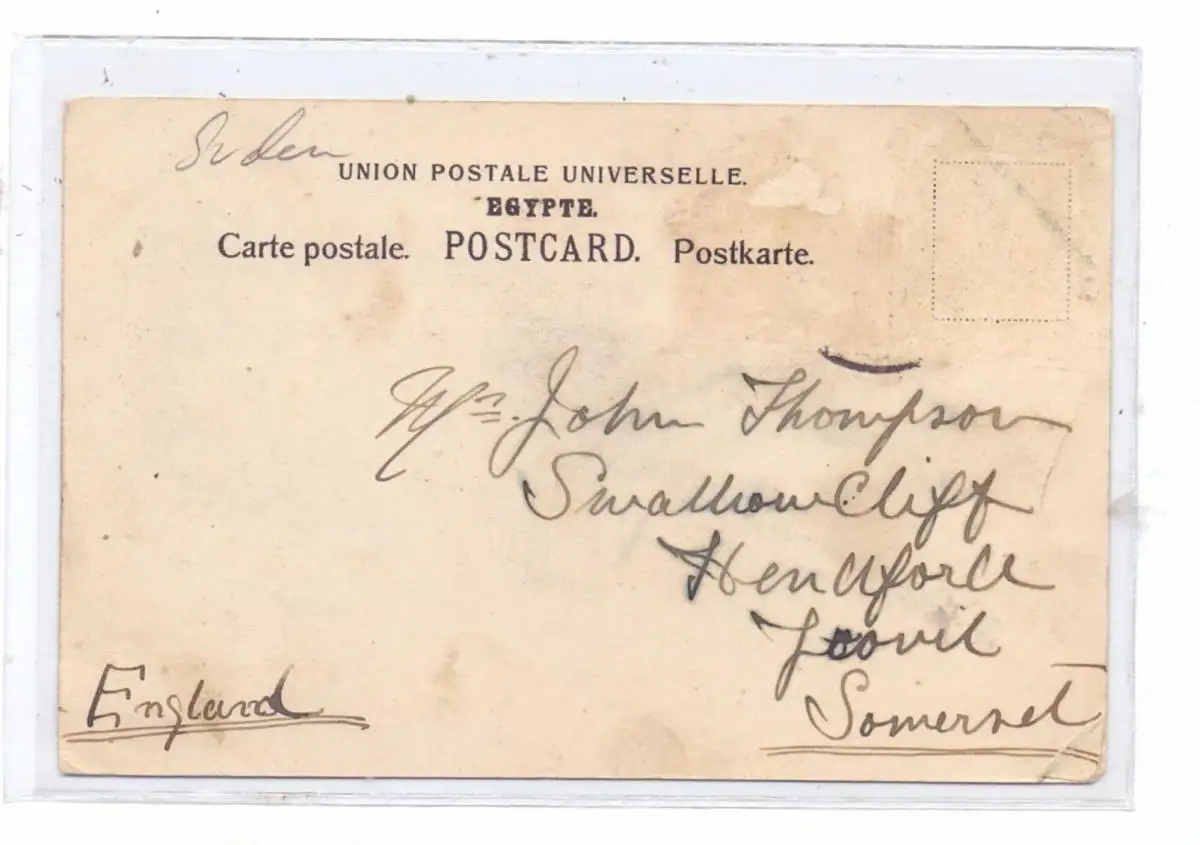 UNION POSTALE UNIVERSELLE.
EGYPTE.
Carte postale. POSTCARD. Postkarte.
John Thompson
Swallowcliff
Hendford
Yeovil
Somerset
England